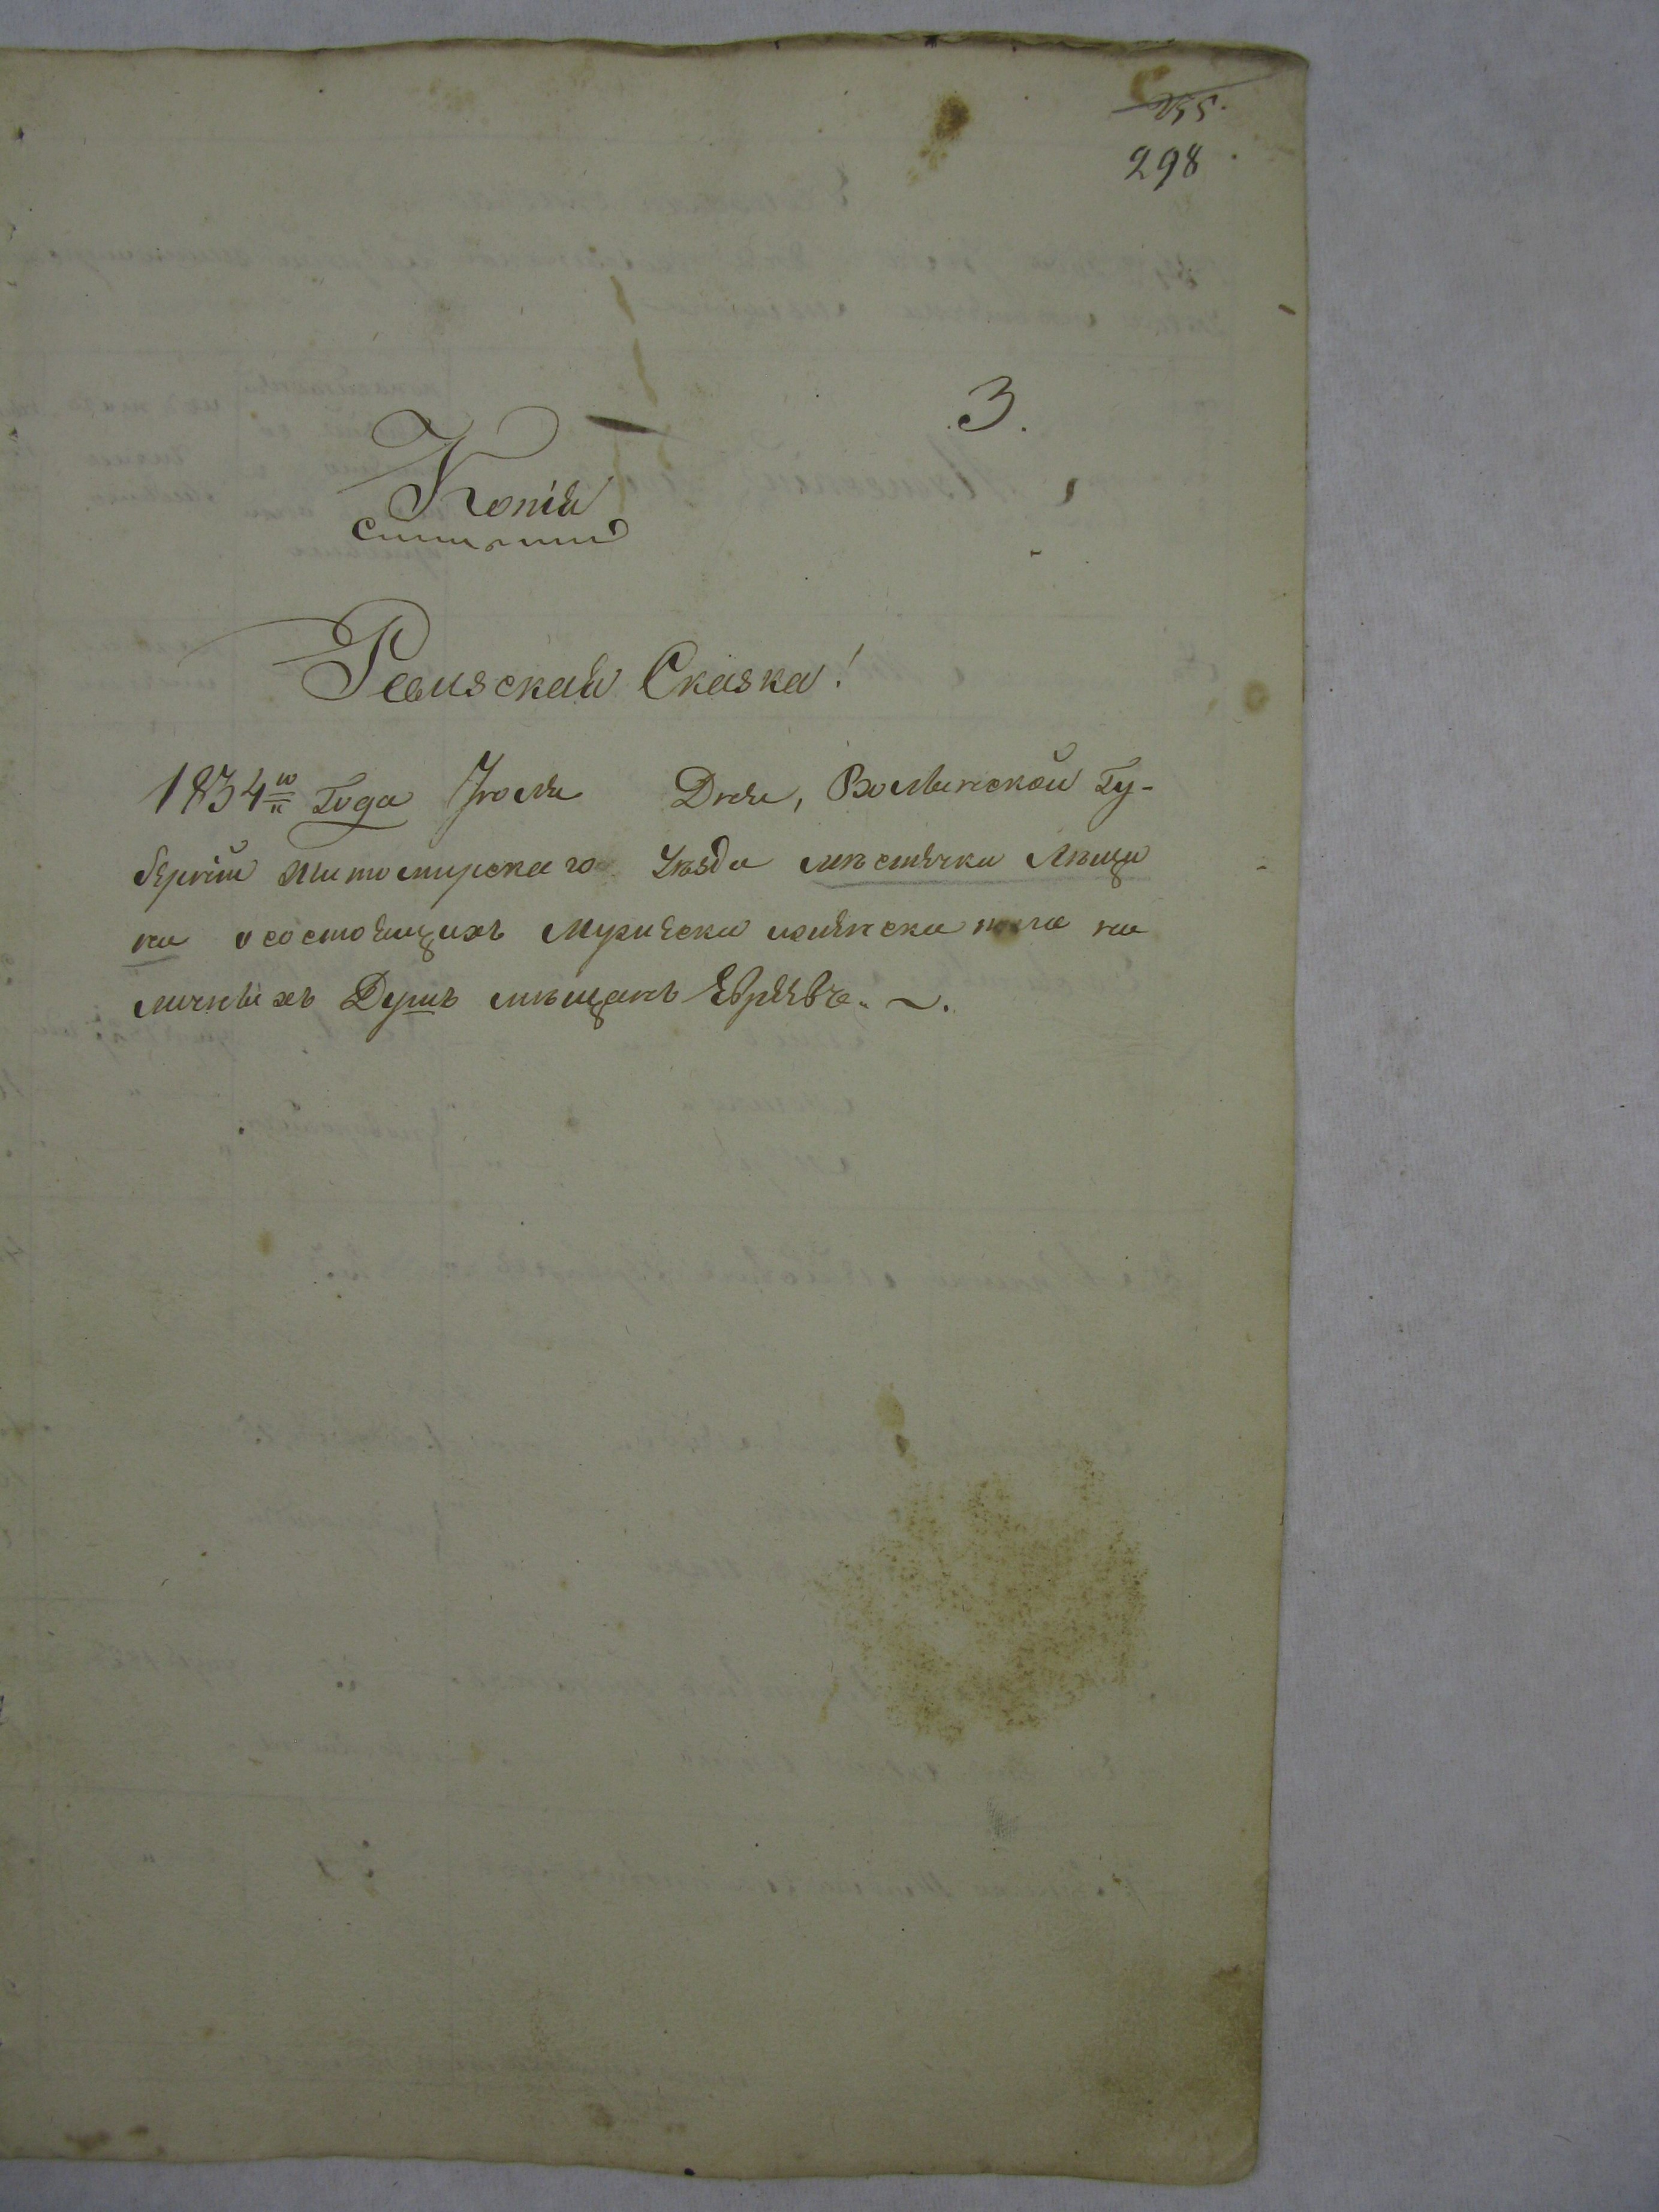 298.
3.
Копія
Ревизская Сказка!
1834го Года Іюля Дня, Волынской Гу-
бернїи Житомирскаго Уѣзда мѣстечка Лещи
на о состоящихъ мужеска и женска пола на
личныхъ Душъ мѣщанъ Евреевъ. ~.